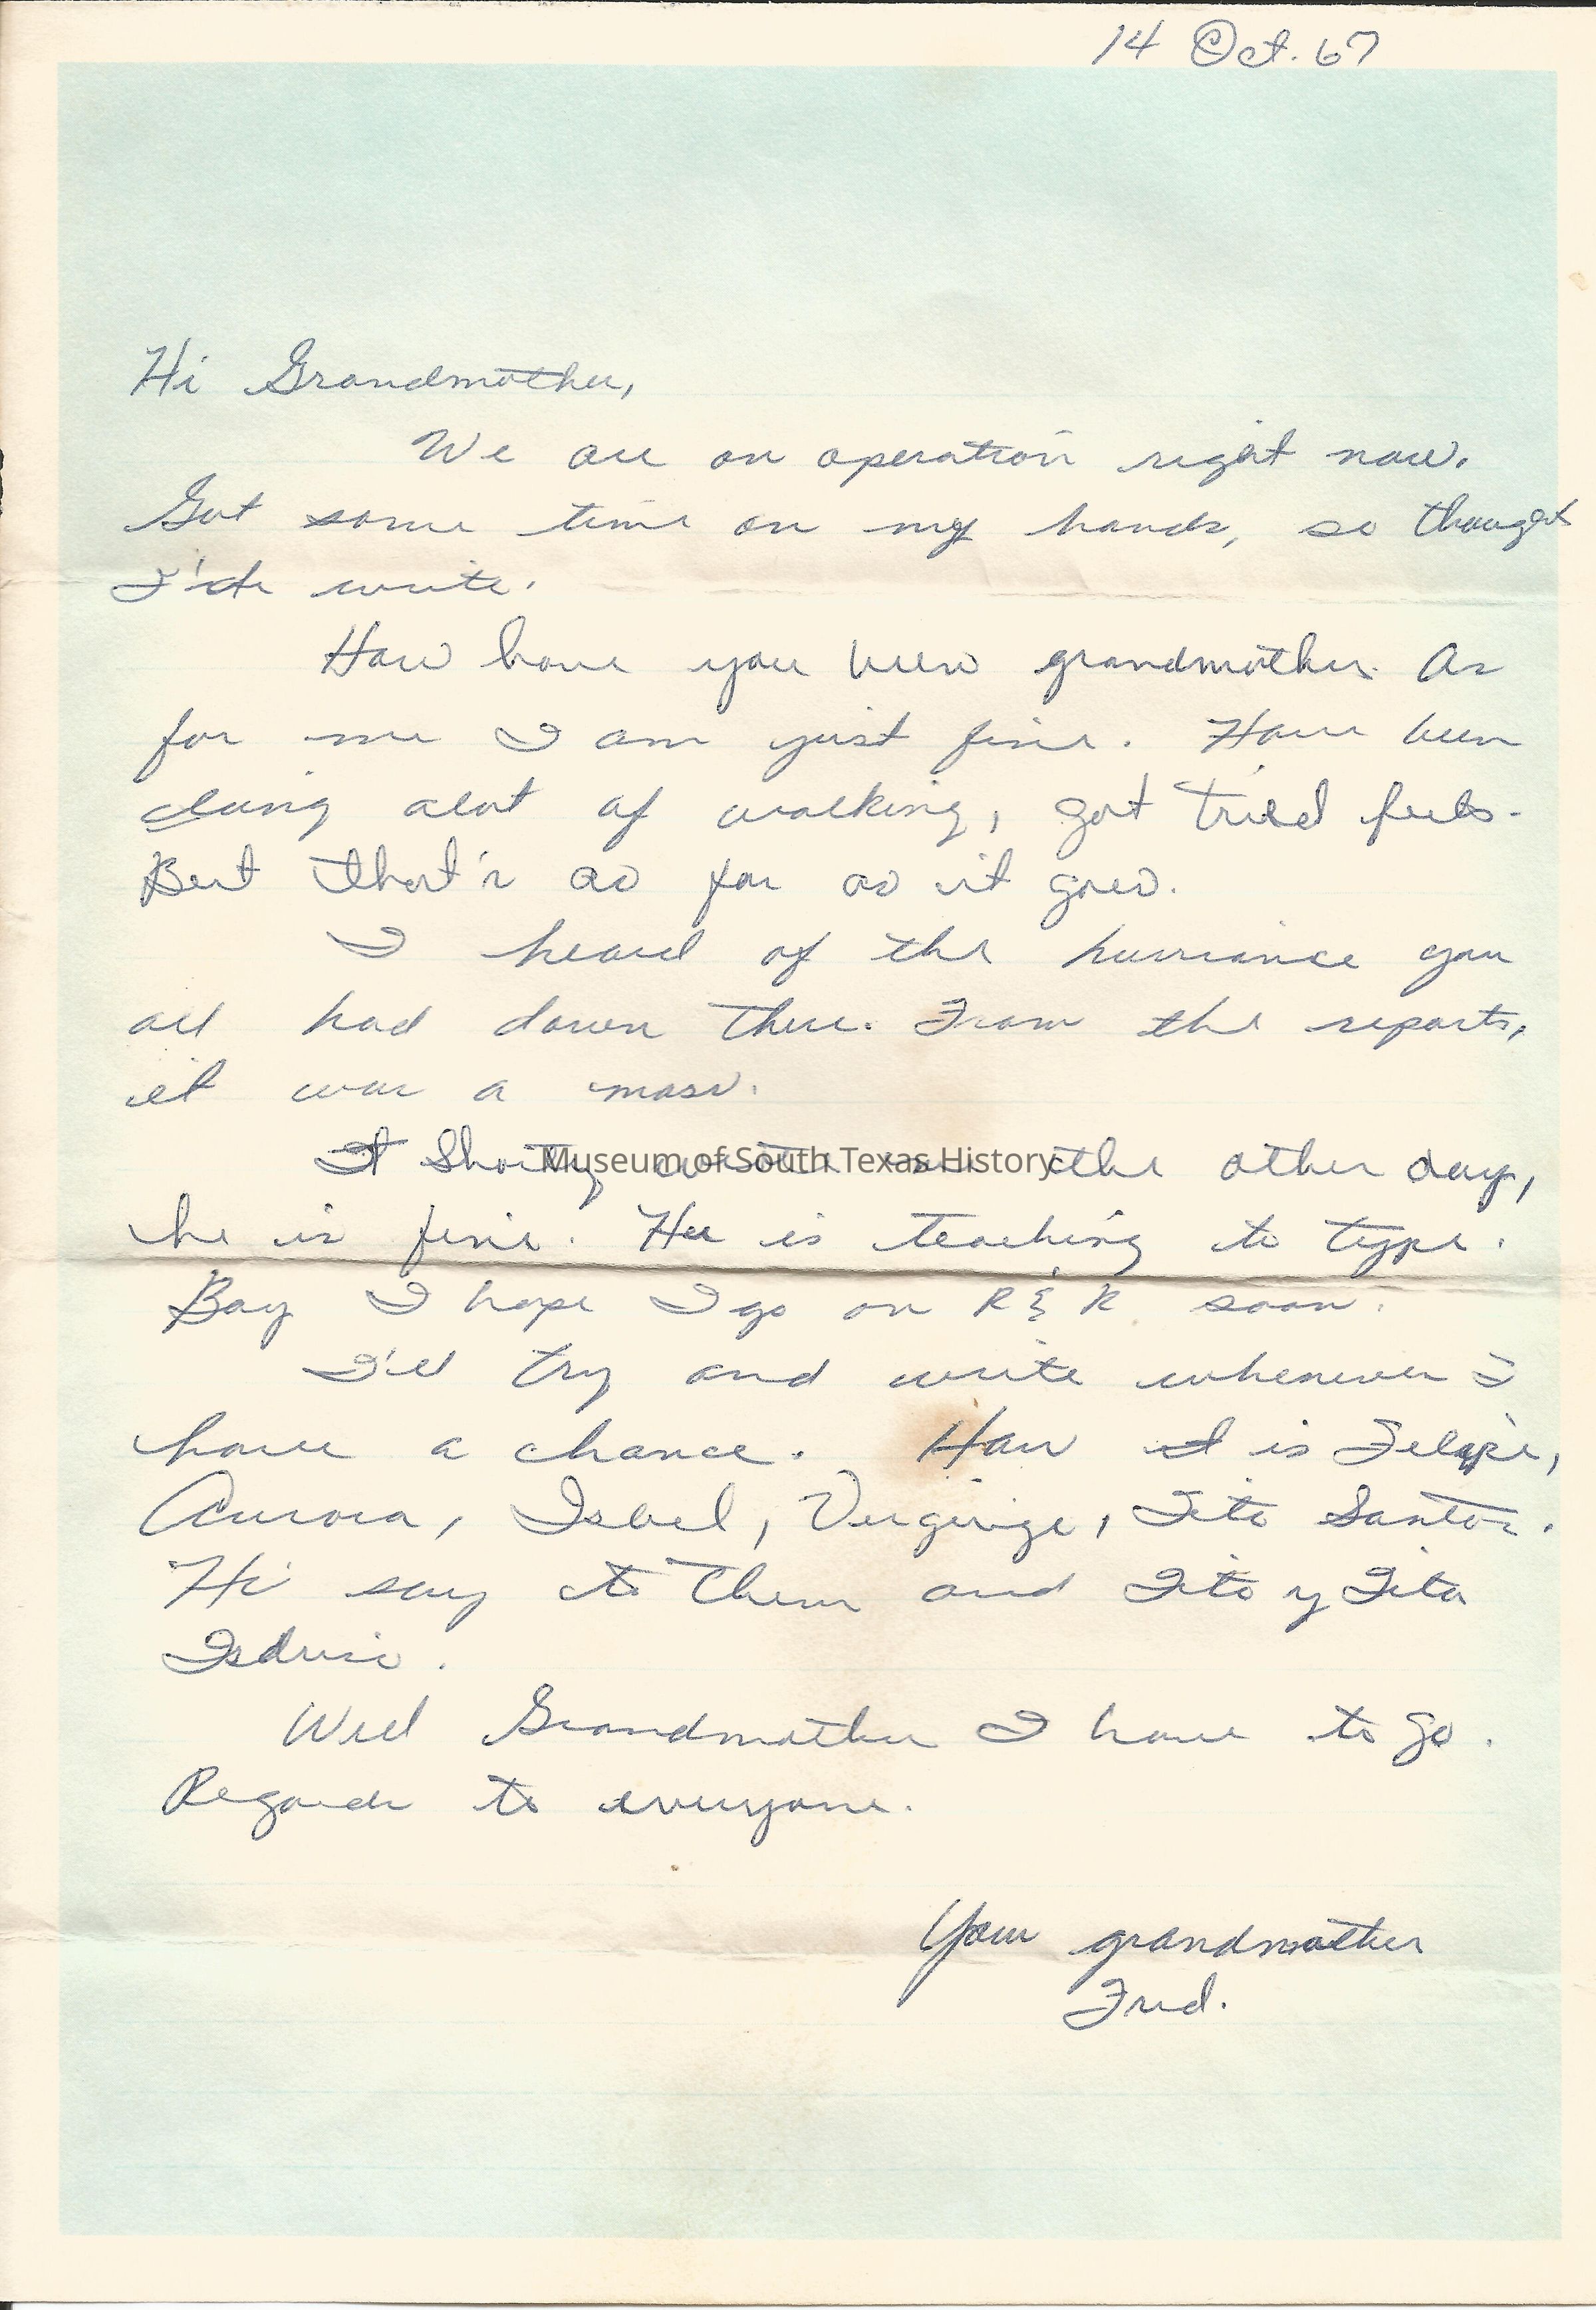 14 Oct. 67
Hi Grandmother,
We are on operation right now.
Got some time on my hands, so thought
I'd write.
How have you been grandmother. As
for me I am just fine. Have been
doing alot of walking, got tried feets.
But that's as far as it goes.
I heard of the hurriance you
all had down there. From the reports,
it was a mass.
Shorty wrote me the other day,
he is fine. He is teaching to type.
Boy I hope I go on R & R soon.
I'll try and write whenever I
have a chance. How is Felape,
Aurora, Isbel, Verginge, Tito Santos.
Hi say to them and Tito y Tita
Isdrio.
Well Grandmother I have to go.
Regards to everyone.
Your grandmother
Fred.
Museum of South Texas History